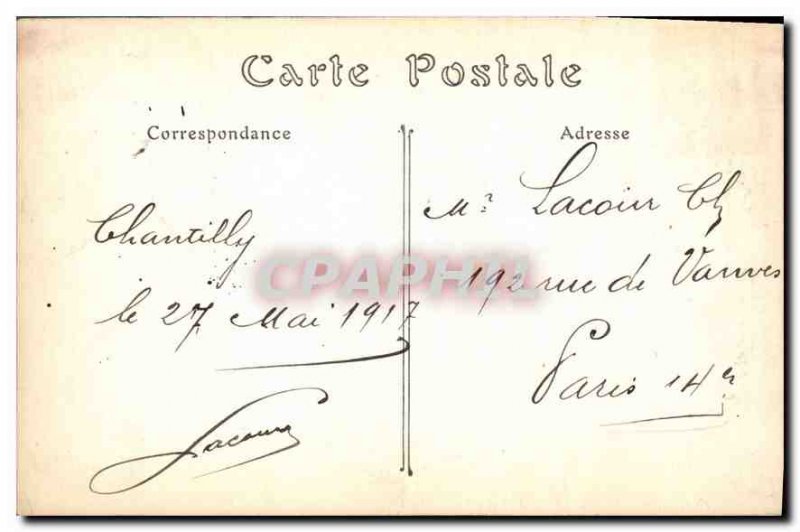 Carte Postale
Correspondance
Adresse
Chantilly
le 27 Mai 1917
Lacour
Mr Lacour Ch
192 rue de Vanves
Paris 14e
CPAPHIL